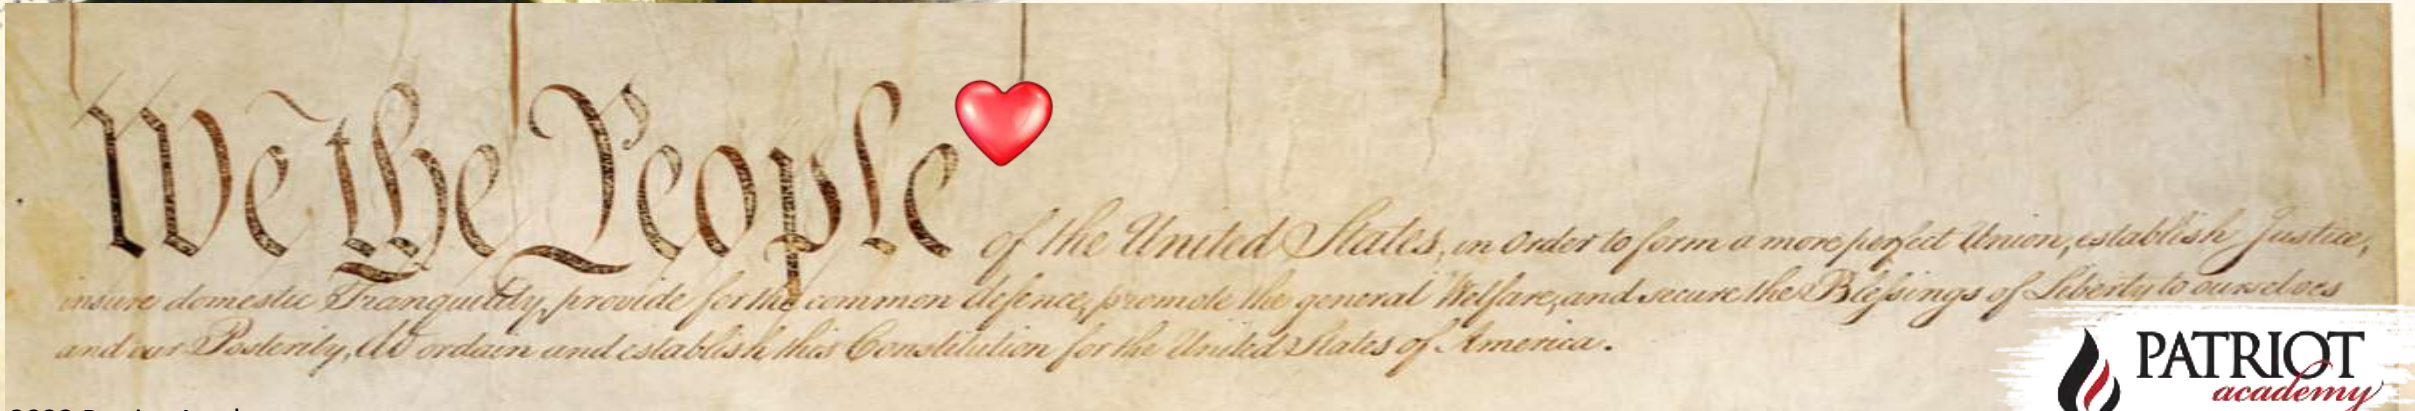 We the People of the United States, in Order to form a more perfect Union, establish Justice,
insure domestic Tranquility, provide for the common defence, promote the general Welfare, and secure the Blessings of Liberty to ourselves
and our Posterity, do ordain and establish this Constitution for the United States of America.
PATRIOT
academy